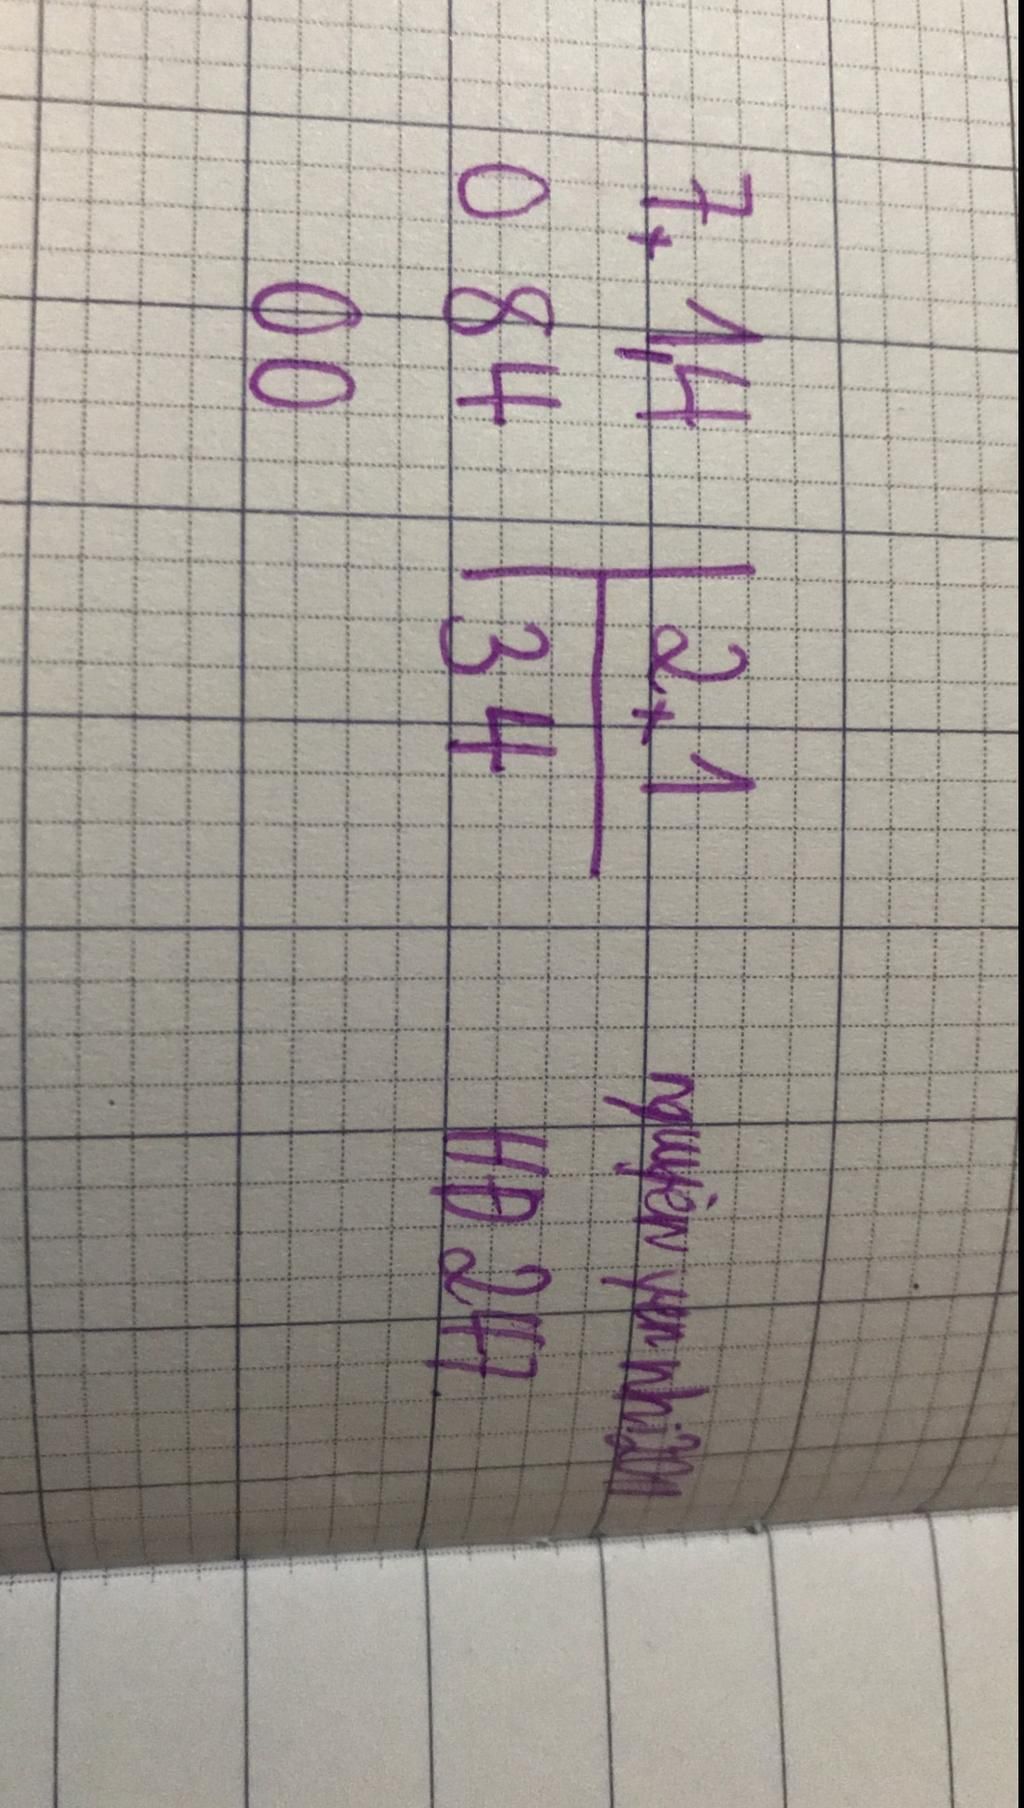 7,14 2,1
0 84 34
00
nguyễn yến nhi
HD 247